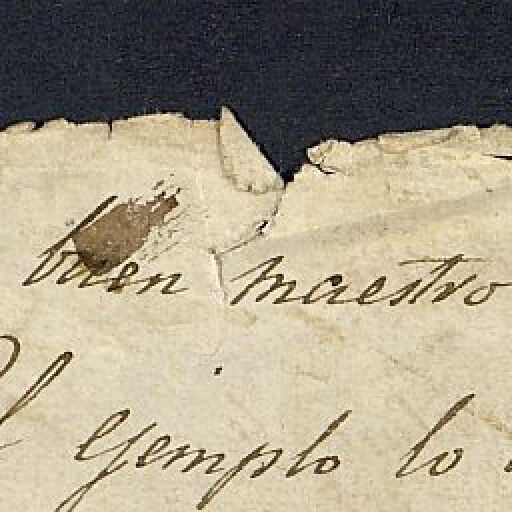 buen maestro
El ejemplo lo